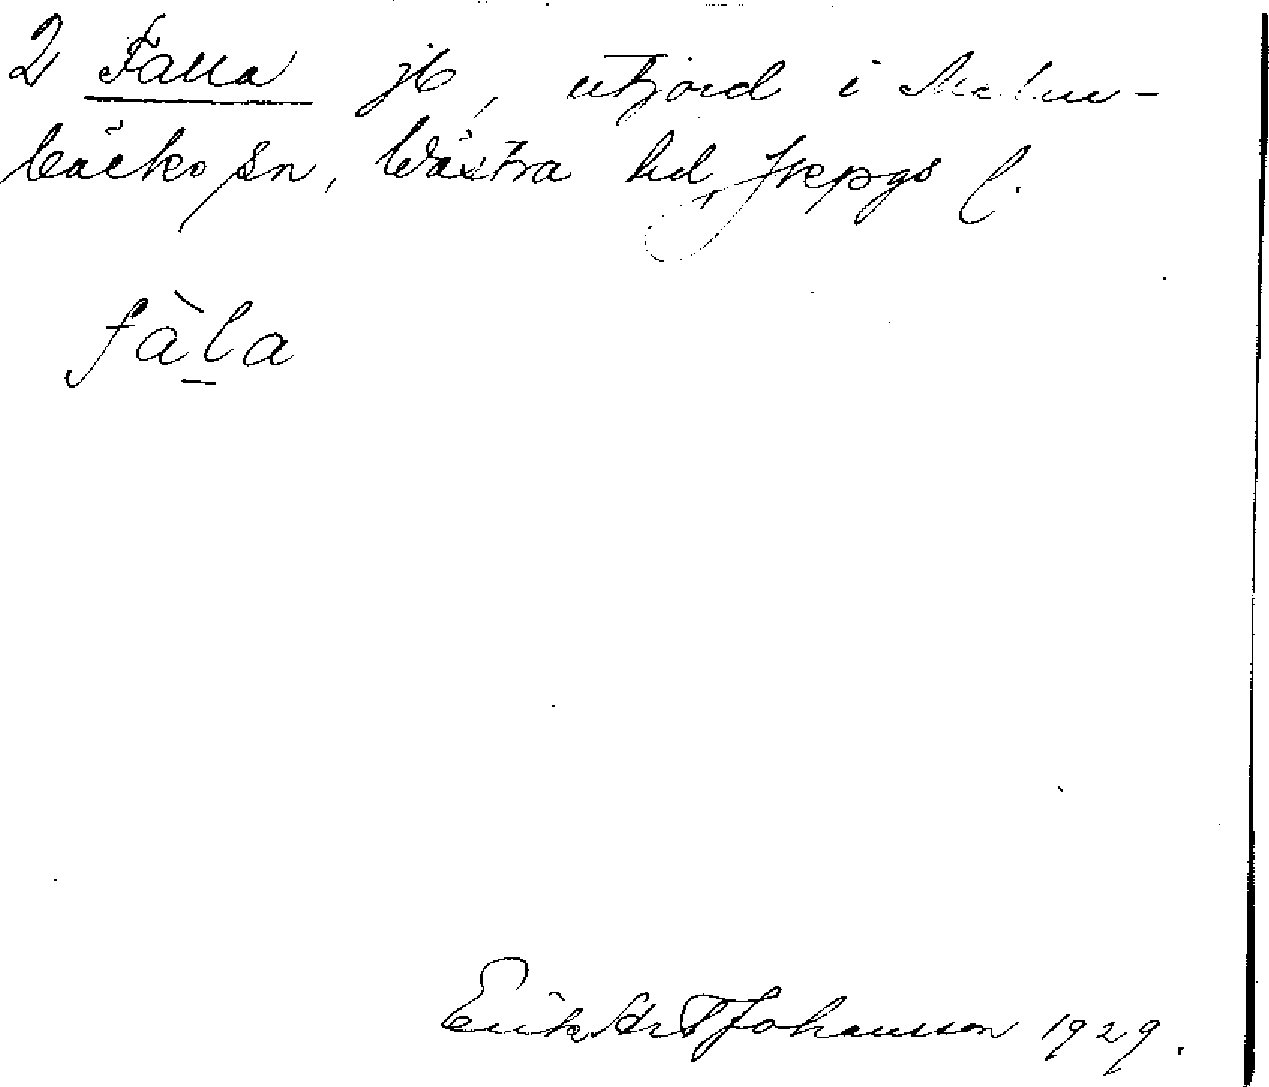 2 Falla jb, utjord i Malm-
bäcks sn, Västra hd, Jkpgs l.
fàla
Erik Johansson 1929.